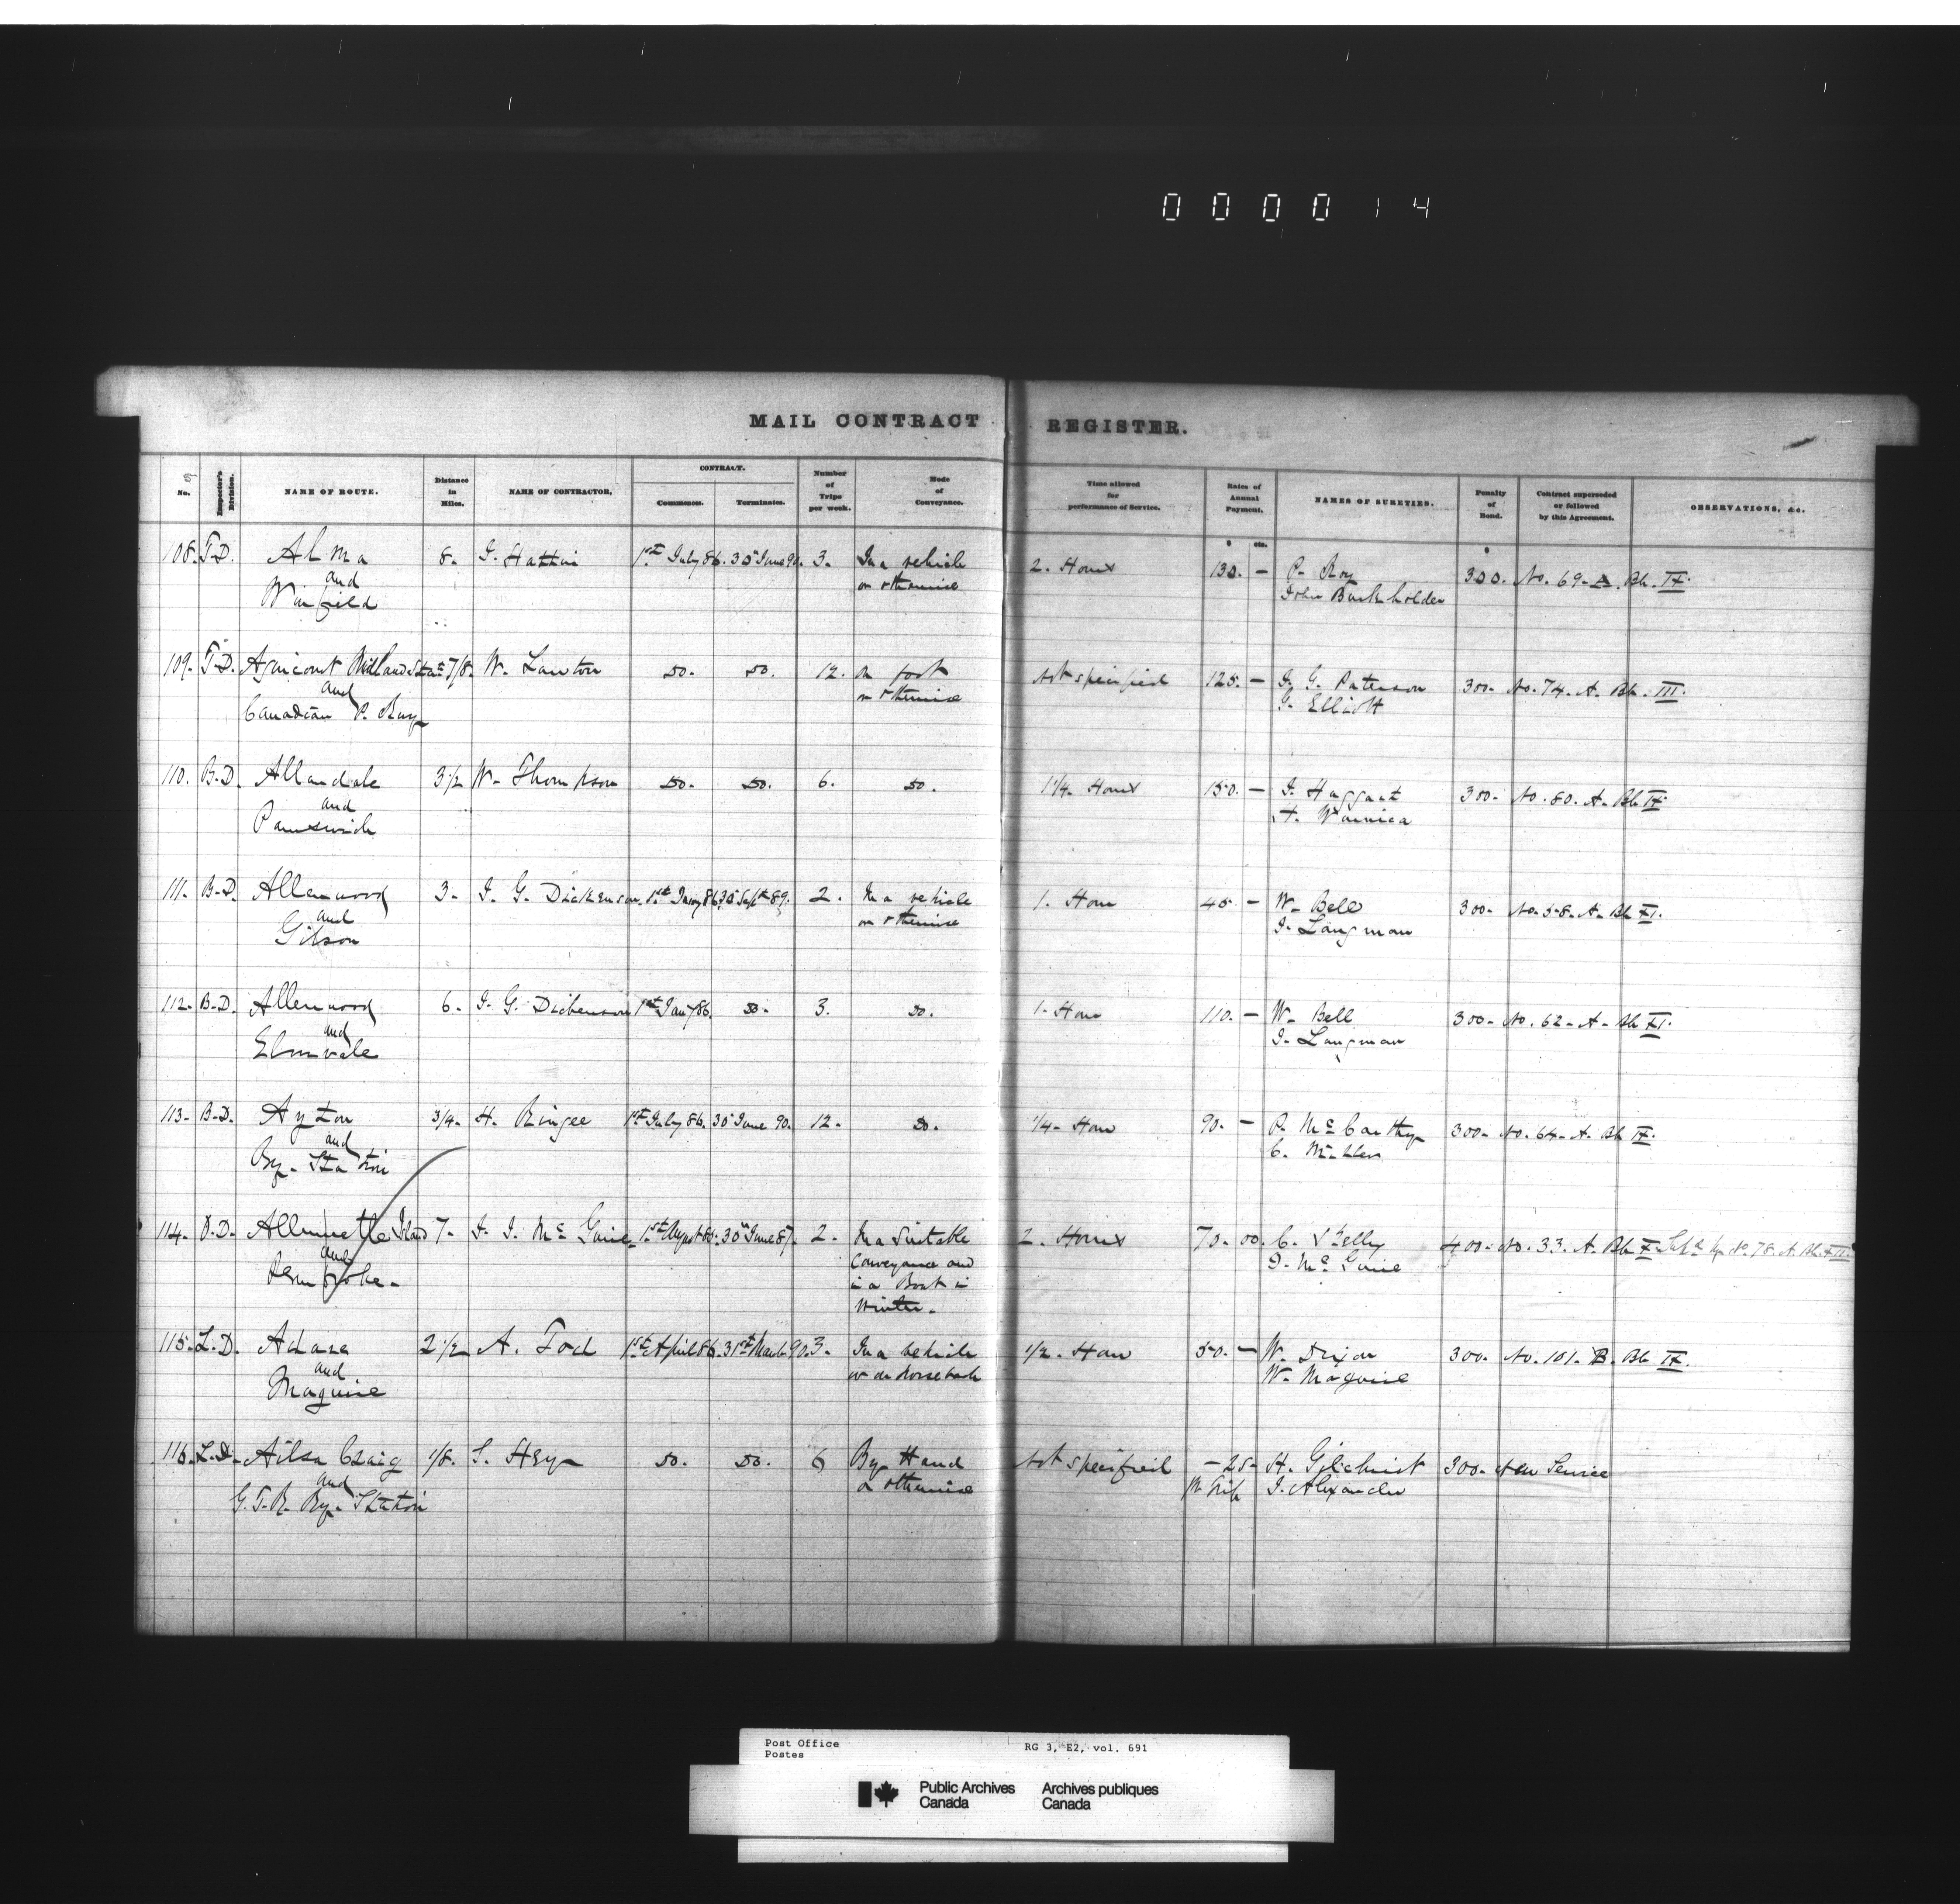 000014
MAIL CONTRACT REGISTER.
No. Inspector's Division. NAME OF ROUTE. Distance in Miles. NAME OF CONTRACTOR. CONTRACT. Commences. Terminates. Number of Trips per week. Mode of Conveyance. Time allowed for performance of Service. Rates of Annual Payment. NAMES OF SURETIES. Penalty of Bond. Contract superseded or followed by this Agreement. OBSERVATIONS, &c.
$ cts. $
108. T.D. Alma 8. 1st July 86. 30 June 90. 3. In a vehicle 2. Hours 130. — P. Roy 300. No. 69. A. Bk. IX.
and or otherwise John Burkholder
Winfield
109. T.D. Agincourt Midland Statn 7/8. W. Lawton Do. Do. 12. On foot Not specified 125. — J. G. Paterson 300. No. 74. A. Bk. III.
and or otherwise G. Elliott
Canadian P. Ry
110. B.D. Allandale 3 1/2 W. Thompson Do. Do. 6. Do. 1 1/4. Hours 150. — J. Haggart 300. No. 80. A. Bk. IX.
and H. Warnica
Painswick
111. B.D. Allenwood 3. J. G. Dickenson 1st Jany 86 30 Sept 89. 2. In a vehicle 1. Hour 45 — W. Bell 300. No. 58. A. Bk. XI.
and or otherwise J. Langman
Gibson
112. B.D. Allenwood 6. J. G. Dickenson 1st Jany 86. Do. 3. Do. 1. Hour 110. — W. Bell 300. No. 62. A. Bk. XI.
and J. Langman
Elmvale
113. B.D. Ayton 3/4. H. Ringee 1st July 86. 30 June 90. 12. Do. 1/4. Hour 90. — P. McCarthy 300. No. 64. A. Bk. IX.
and C.
Ry. Station
114. O.D. Allumette Island 7. J. J. McGuire 1st August 86. 30 June 87. 2. In a Suitable 2. Hours 70. 00. C. 400. No. 33. A. Bk. X No. 78. A. Bk.
and Conveyance and D. McGuire
Pembroke. in a Boat in
Winter.
115. L.D. Adare 2 1/2 A. Tod 1st April 86. 31st March 90. 3. In a vehicle 1/2. Hour 50. — W. Dixon 300. No. 101. B. Bk. IX.
and or on Horseback W. Maguire
Maguire
116. L.D. Ailsa Craig 1/8. S. Hey Do. Do. 6 By Hand Not specified — 25 H. Gilchrist 300. New Service
and or otherwise pr Trip J. Alexander
G.T.R. Ry. Station
Post Office RG 3, E2, vol. 691
Postes
Public Archives Archives publiques
Canada Canada